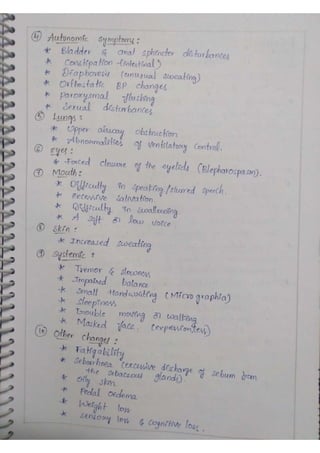 ④ Autonomic symptoms :
* Bladder & anal sphincter disturbances
* Constipation (Intestinal)
* Diaphoresis (unusual sweating)
* Orthostatic BP changes
* paroxysmal flushing
* Sexual disturbances
⑤ Lungs :
* Upper airway obstruction
* Abnormalities of ventilatory control.
⑥ eyes :
* Forced closure of the eyelids (Blepharospasm).
⑦ Mouth :
* Difficulty in speaking / slurred speech.
* excessive salivation
* Difficulty in swallowing
* A soft or low voice
⑧ Skin :
* Increased sweating
⑨ Systemic :
* Tremor & slowness
* Impaired balance
* Small Handwriting (Micrographia)
* Sleepiness
* Trouble moving or walking
* Masked face. (expressionless)
⑩ Other changes :
* Fatigability
* Seborrhoea (excessive discharge of sebum from
the sebaceous glands)
* Oily skin
* Pedal oedema
* Weight loss
* sensory loss & cognitive loss.